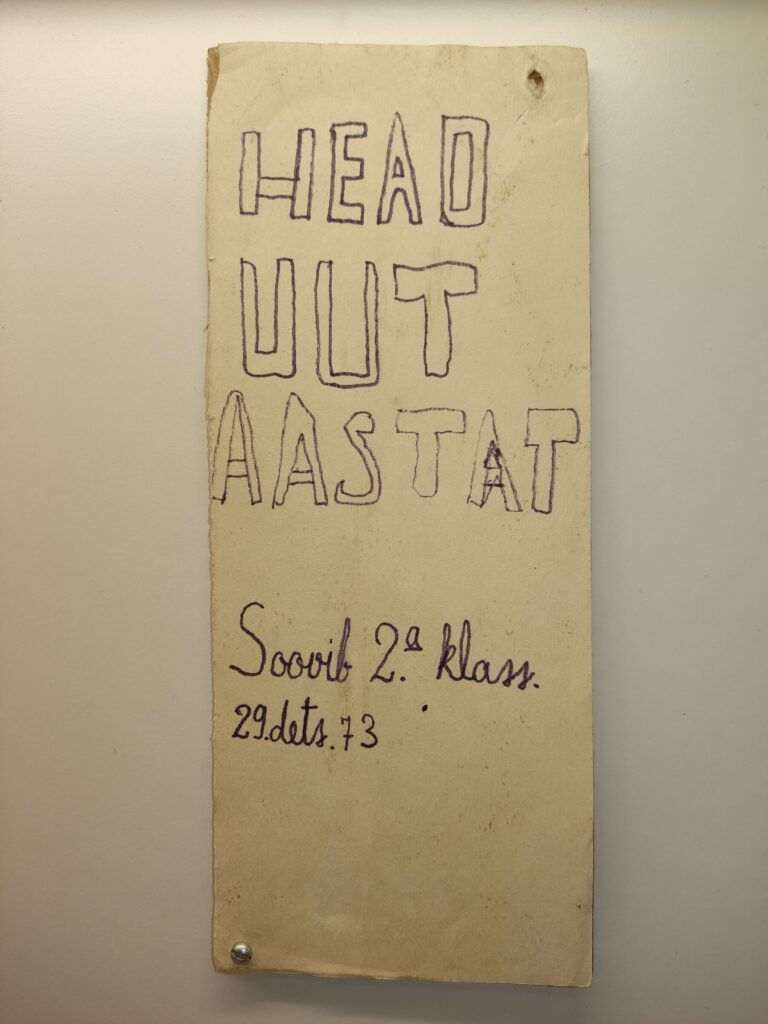 HEAD
UUT
AASTAT
Soovib 2.a klass.
29.dets.73